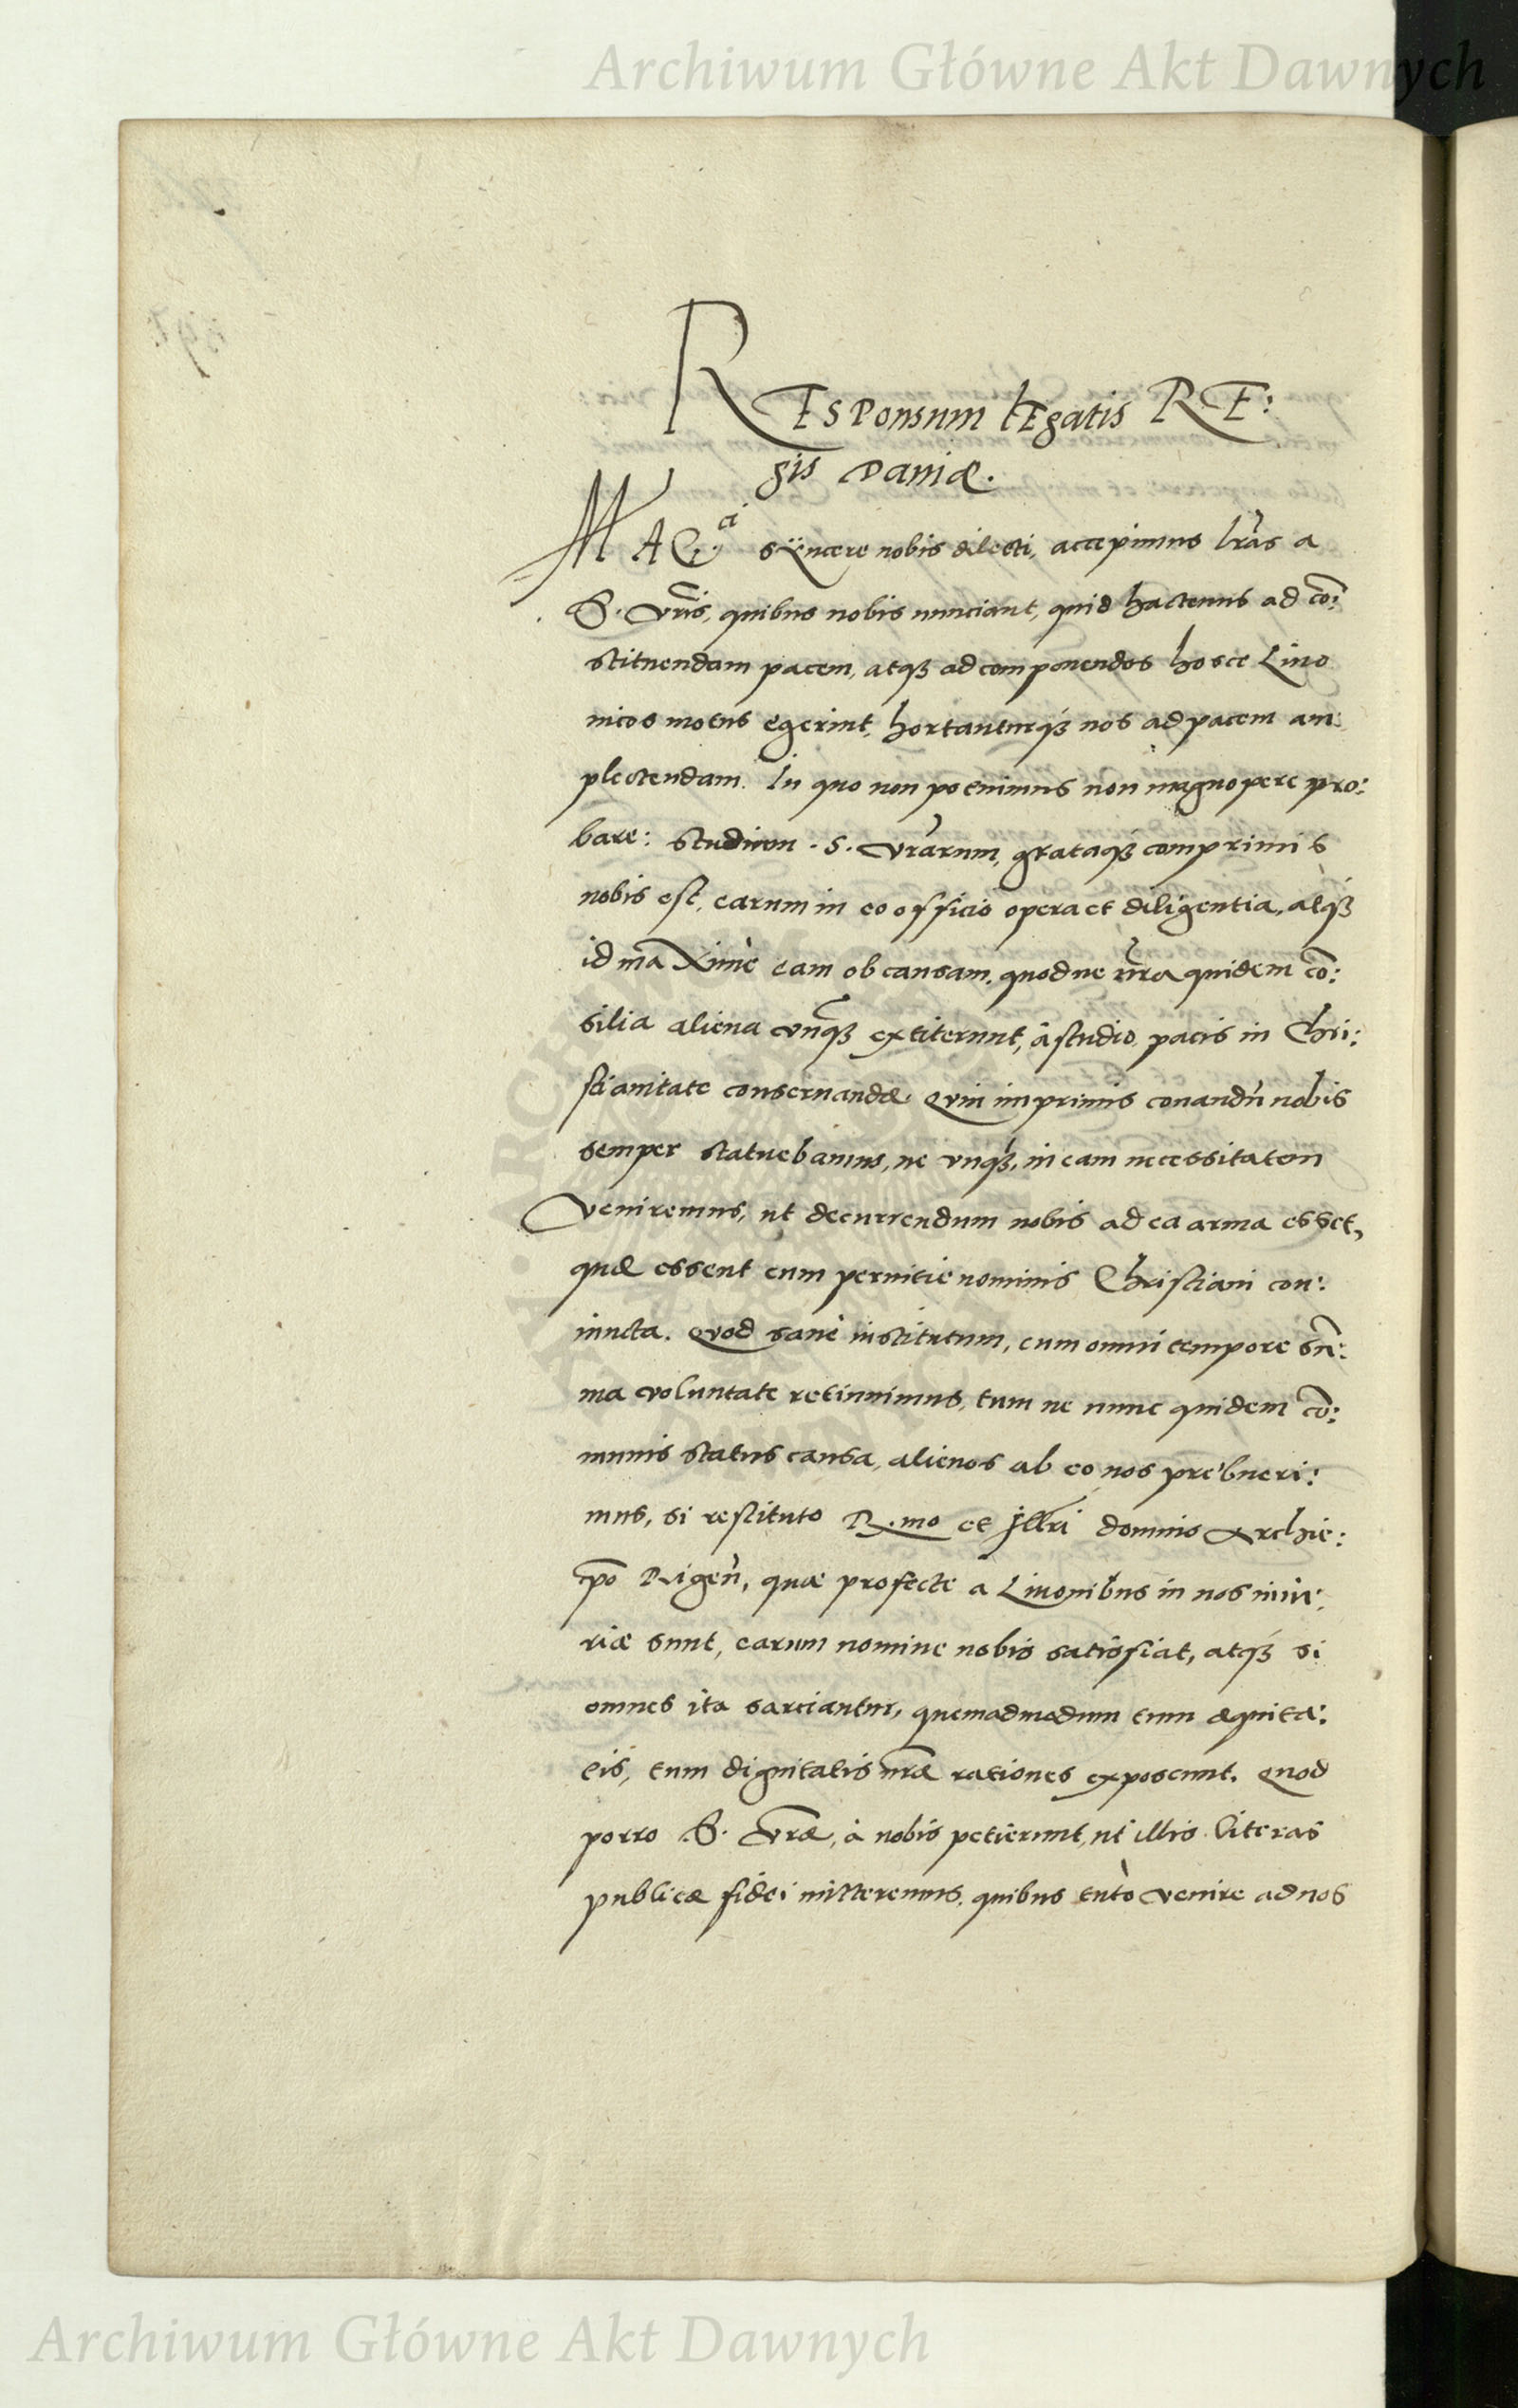 Archiwum Główne Akt Dawnych
REsponsum lEgatis RE:
gis Daniæ.
MAG.ci sÿncere nobis dilecti, accepimus lr̃as a
S. vr̃is, quibus nobis nunciant, quid hactenus ad cõ:
stituendam pacem, atqꝫ ad componendos hosce Liuo
nicos motus egerint, hortanturqꝫ nos ad pacem am:
plectendam. In quo non poenimus non magnopere pro:
bare: studium . S. vr̃arum, grataqꝫ comprimis
nobis est, earum in eo officio opera et diligentia, atqꝫ
id maXimè eam ob causam, quod ne nr̃a quidem cõ:
silia aliena vnqꝫ extiterunt, à studio pacis in Chri:
stianitate conseruandæ. Quin imprimis conandũ nobis
semper statuebamus, ne vnqꝫ, in eam necessitatem
Veniremus, ut decurrendum nobis ad ea arma esset,
quæ essent cum pernitie nominis Christiani con:
iuncta. Quod sanè institutum, cum omni tempore sũ:
ma voluntate retinuimus, tum ne nunc quidem cõ:
munis status causa, alienos ab eo nos prębueri:
mus, si restituto R.mo et Jllri domino Archie:
p̃o Rigeñ, quæ profecte a Liuonibus in nos iniu:
riæ sunt, earum nomine nobis satisfiat, atqꝫ si
omnes ita sarciantur, quemadmodum tum æquita:
tis, tum dignitatis nr̃æ rationes exposcunt. Quod
porro S. Vr̃æ, à nobis petierunt, ut illis literas
publicæ fidei mitteremus, quibus tutò venire ad nos
Archiwum Główne Akt Dawnych